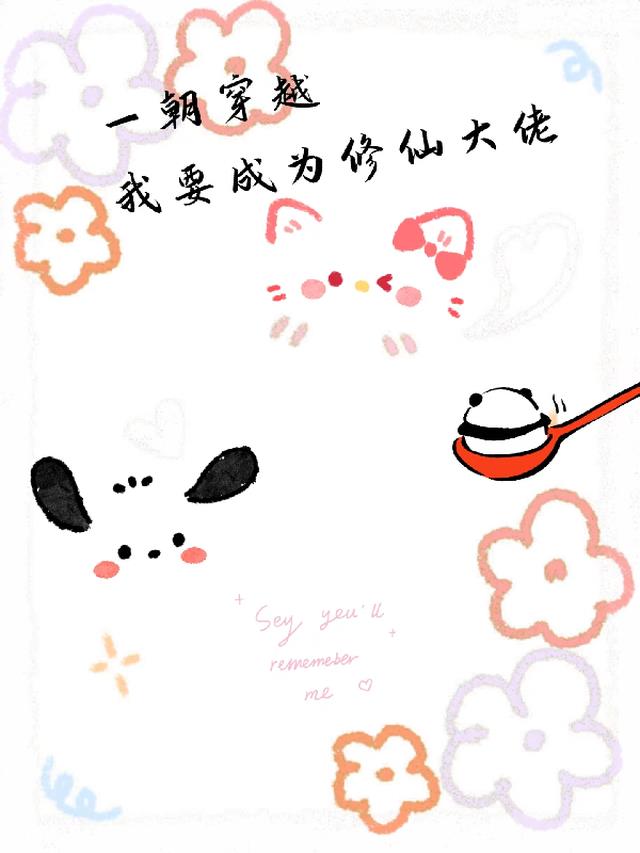 一朝穿越
我要成为修仙大佬
Sey yeu'll
rememeber
me